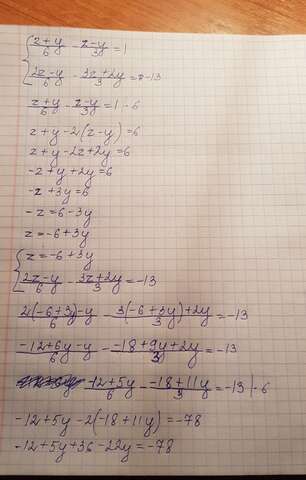 { (z+y)/6 - (z-y)/3 = 1
{ (2z-y)/6 - (3z+2y)/3 = -13
(z+y)/6 - (z-y)/3 = 1 |·6
z+y-2(z-y)=6
z+y-2z+2y=6
-z+y+2y=6
-z+3y=6
-z=6-3y
z=-6+3y
{ z=-6+3y
{ (2z-y)/6 - (3z+2y)/3 = -13
(2(-6+3)-y)/6 - (3(-6+3y)+2y)/3 = -13
(-12+6y-y)/6 - (-18+9y+2y)/3 = -13
(-12+5y)/6 - (-18+11y)/3 = -13 |·6
-12+5y-2(-18+11y)=-78
-12+5y+36-22y=-78